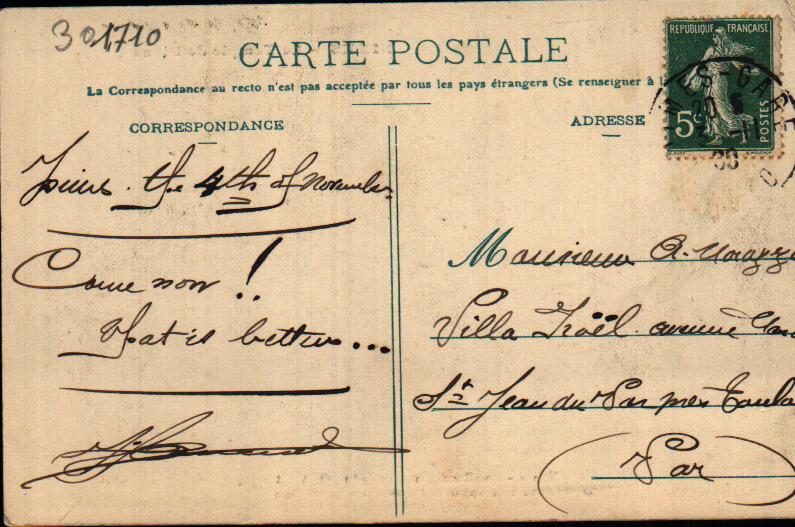 301710
CARTE POSTALE
La Correspondance au recto n'est pas acceptée par tous les pays étrangers (Se renseigner à l
CORRESPONDANCE
ADRESSE
REPUBLIQUE FRANÇAISE
5c
POSTES
MES-GARE
the 4th of November
Come now!
that is better...
Monsieur A.
Villa Noël. avenue
St Jean du Var près Toulo
(Var)